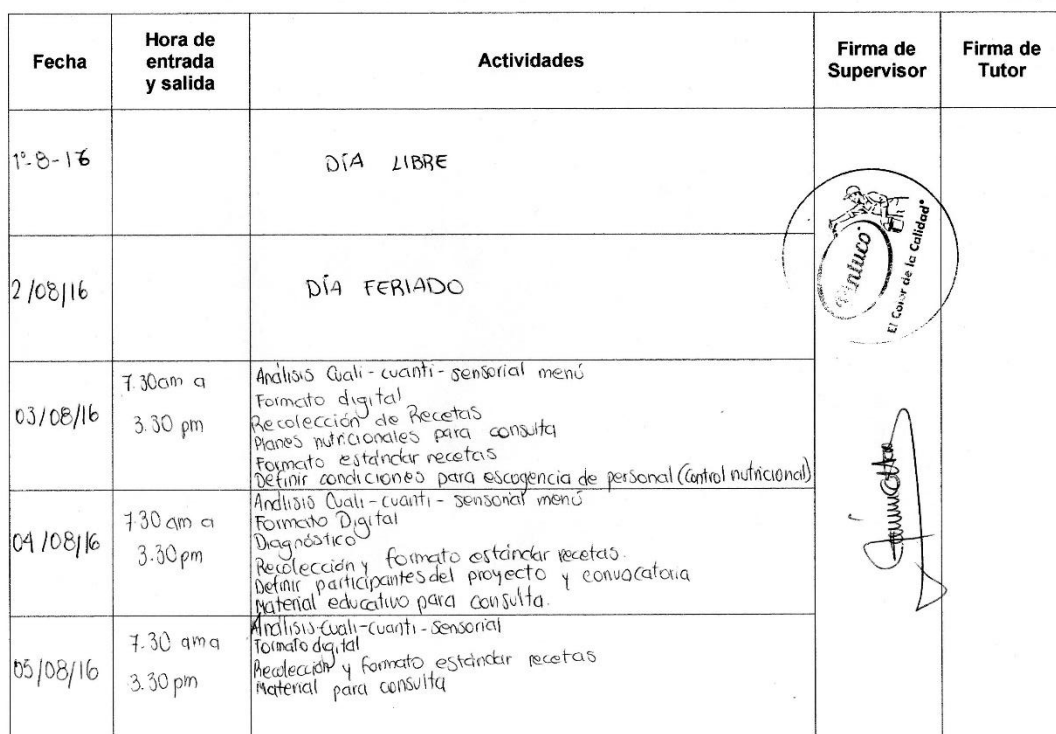 Fecha
Hora de
entrada
y salida
Actividades
Firma de
Supervisor
Firma de
Tutor
1º-8-16
DÍA LIBRE
Pintuco
El Color de la Calidad
2/08/16
DÍA FERIADO
03/08/16
7.30am a
3.30 pm
Análisis Cuali-cuanti-sensorial menú
Formato digital
Recolección de Recetas
Planes nutricionales para consulta
Formato estándar recetas
Definir condiciones para escogencia de personal (Control nutricional)
04/08/16
7.30 am a
3.30pm
Análisis Cuali-cuanti-sensorial menú
Formato Digital
Diagnóstico
Recolección y formato estándar recetas.
Definir participantes del proyecto y convocatoria
Material educativo para consulta.
05/08/16
7.30 am a
3.30 pm
Análisis-Cuali-cuanti-sensorial
Formato digital
Recolección y formato estándar recetas
Material para consulta